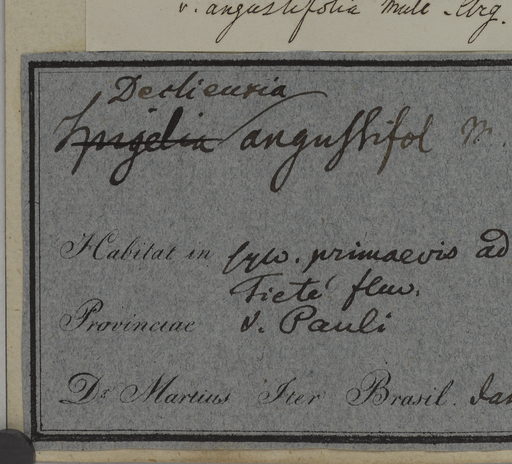 v. angustifolia Muell. Arg.
Declieuxia
Spigelia angustifol M.
Habitat in sylv. primaevis ad
Tieté fluv.
Provinciae S. Pauli
Dr. Martius Iter Brasil. Jan